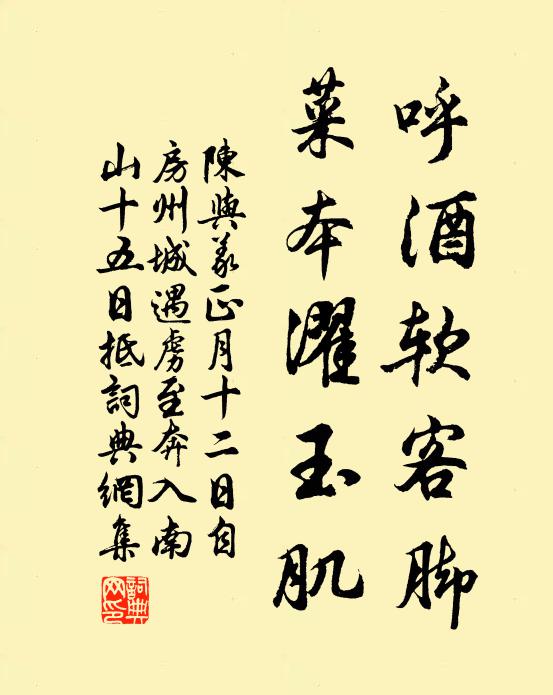 呼酒软客脚
菜本濯玉肌
陳與義正月十二日自
房州城遇虜至奔入南
山十五日抵詞典網集
詞典
网印